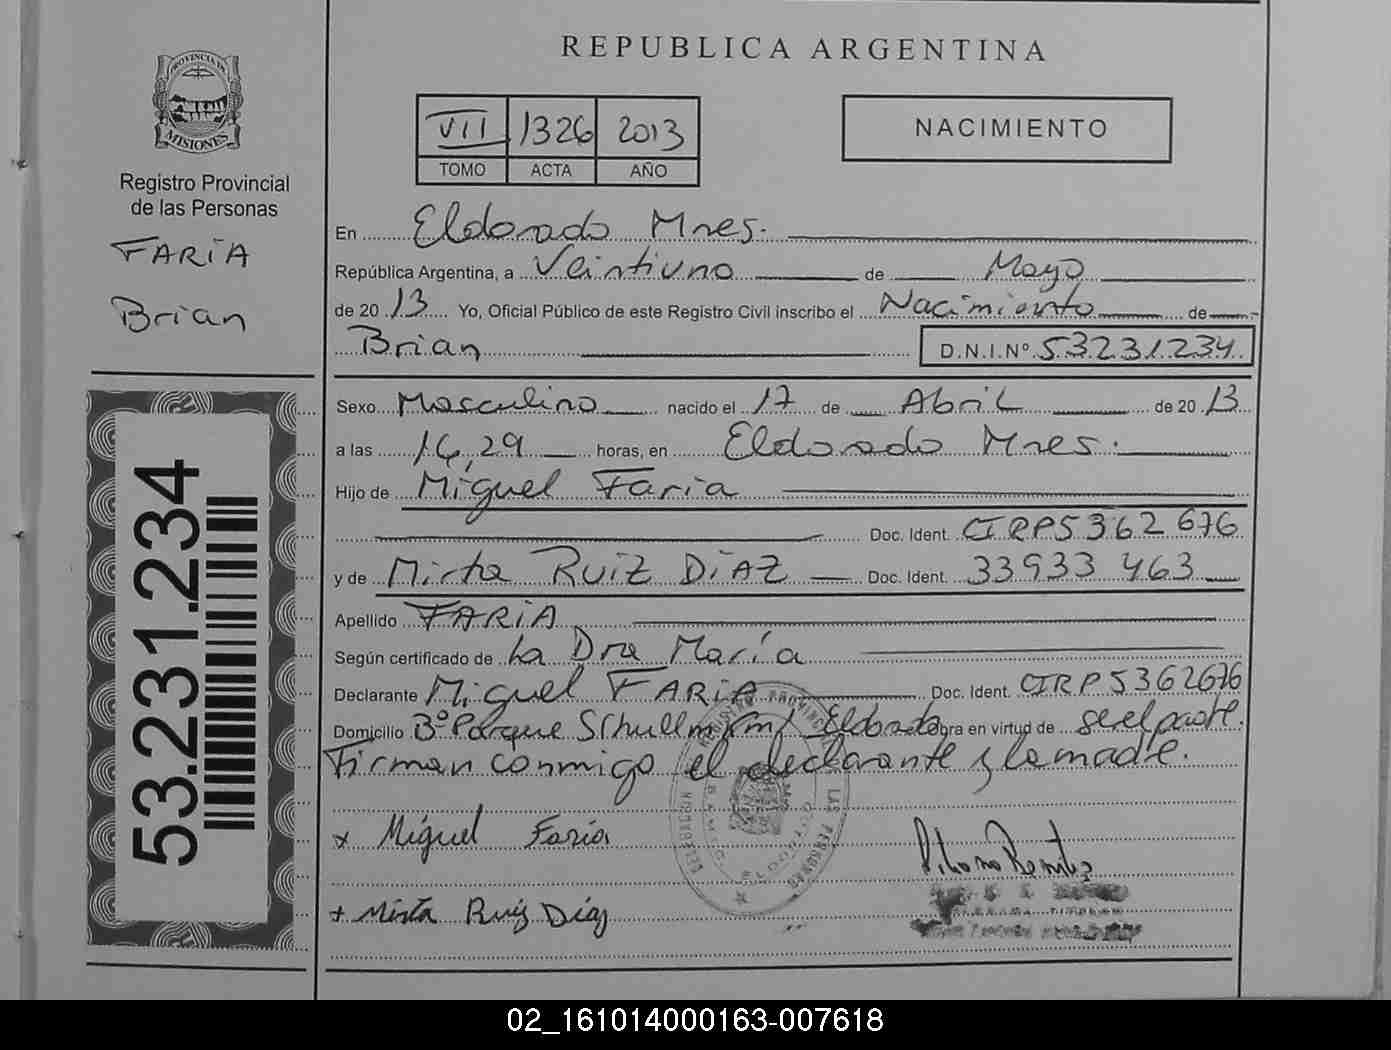 PROVINCIA DE
MISIONES
Registro Provincial
de las Personas
FARIA
Brian
53.231.234
REPUBLICA ARGENTINA
VII 1326 2013
TOMO ACTA AÑO
NACIMIENTO
En Eldorado Mnes.
República Argentina, a Veintiuno de Mayo
de 20 13 Yo, Oficial Público de este Registro Civil inscribo el Nacimiento de
Brian D.N.I.Nº 53231234
Sexo Masculino nacido el 17 de Abril de 20 13
a las 16,29 horas, en Eldorado Mnes.
Hijo de Miguel Faria
Doc. Ident. CIRP5362676
y de Mirta RUIZ DIAZ Doc. Ident. 33933463
Apellido FARIA
Según certificado de La Dra María
Declarante Miguel FARIA Doc. Ident. CIRP5362676
Domicilio Bº Parque Schullman Eldorado obra en virtud de ser el padre.
Firman conmigo el declarante y la madre.
x Miguel Faria
+ Mirta Ruiz Díaz
02_161014000163-007618